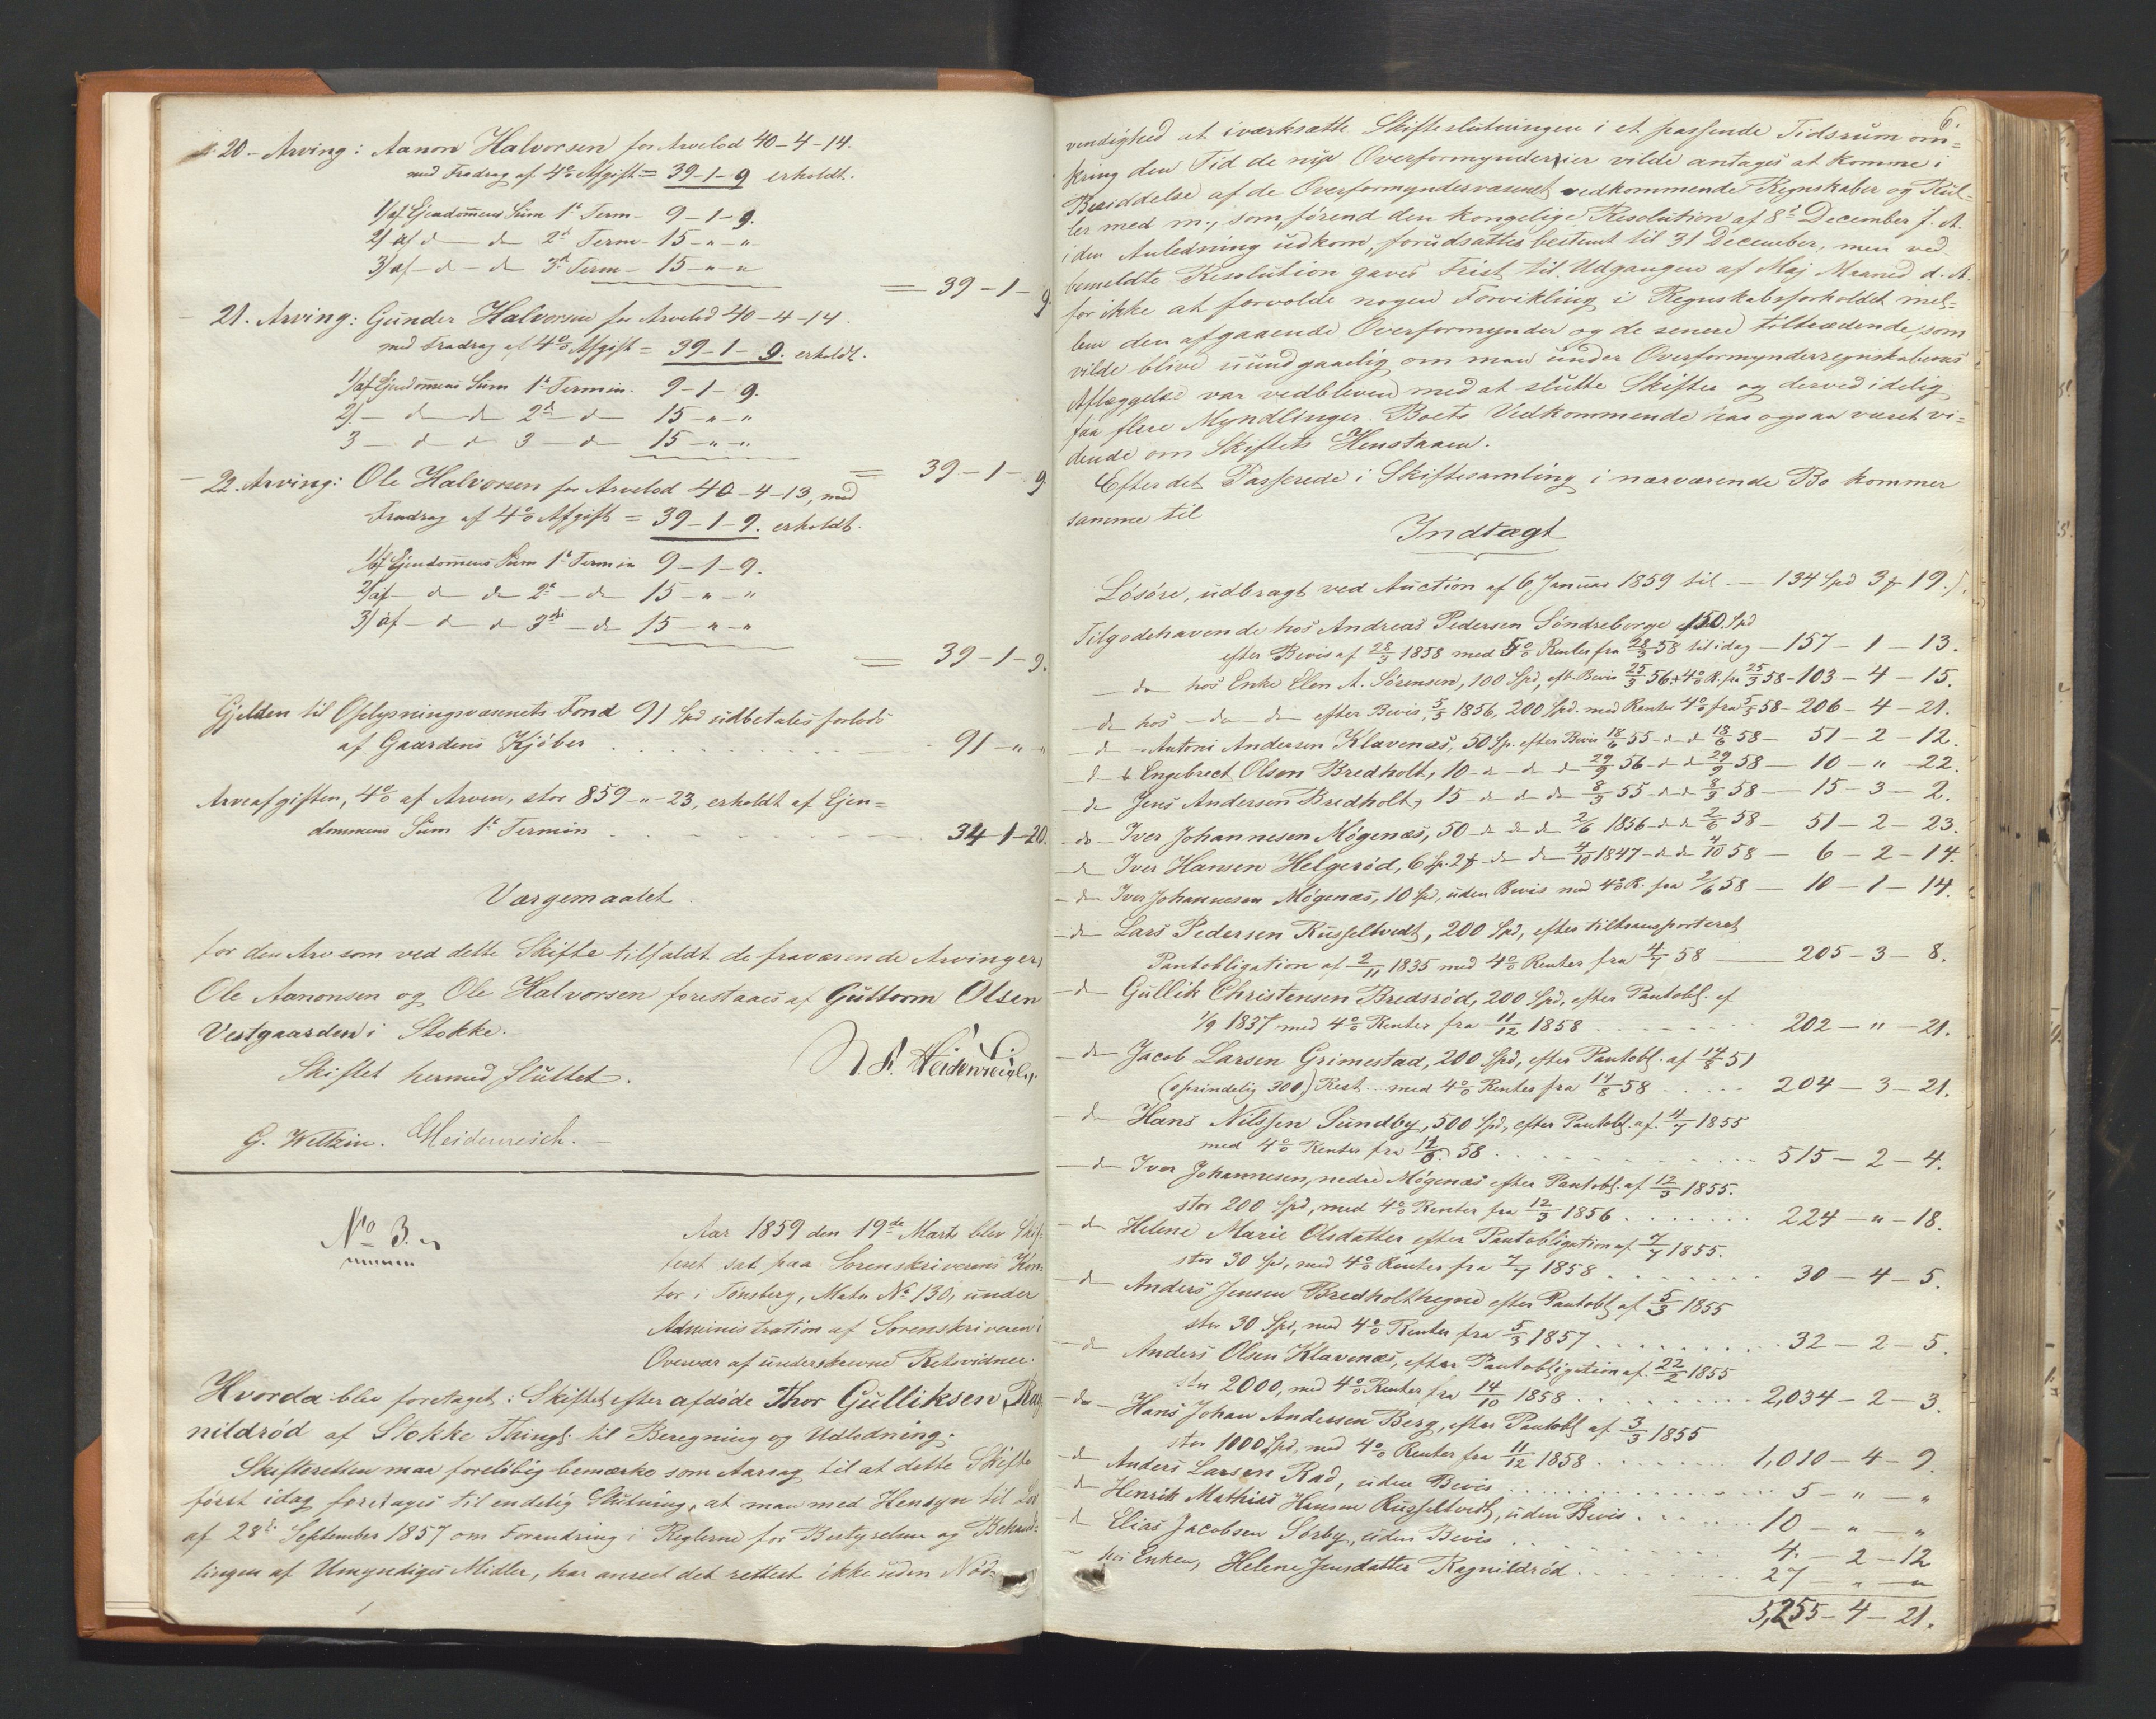 20 - Arving: Aanon Halvorsen for Arvelod 40-4-14.
med Fradrag af 4% Afgift = 39-1-9 erholdt.
1/ af Ejendommens Sum 1ste Term - 9-1-9.
2/ af d— d— 2d Term - 15-"-"
3/ af - d - d 3d Term - 15-"-"
= 39-1-9.
21. Arving: Gunder Halvorsen for Arvelod 40-4-14.
med Fradrag af 4% Afgift = 39-1-9. erholdt.
1/ af Ejendommens Sum 1ste Termin. 9-1-9.
2/ - d— d— 2d - d— 15-"-"
3 - d— d 3 - d— 15-"-"
= 39-1-9.
22. Arving: Ole Halvorsen for Arvelod 40-4-13, med
Fradrag af 4% Afgift = 39-1-9. erholdt.
1/ af Ejendommens Sum 1ste Termin 9-1-9.
2/ af - d— d— 2d - d— 15-"-"
3/ af - d— d 3die - d— 15-"-"
= 39-1-9.
Gjelden til Oplysningsvæsenets Fond 91 Spd udbetales forlods
af Gaardens Kjøber . . . 91-"-"
Arveafgiften, 4% af Arven, stor 859-"-23, erholdt af Ejen=
dommens Sum 1ste Termin . . . 34-1-20.
Værgemaalet
for den Arv som ved dette Skifte tilfaldt de fraværende Arvinger,
Ole Aanonsen og Ole Halvorsen forestaaes af Guttorm Olsen
Vestgaarden i Stokke.
Skiftet hermed sluttet.
Heidenreich
G. Weltzin. Heidenreich.
No 3.
Aar 1859 den 19de Marts blev Skif=
teret sat paa Sorenskriverens Kon=
tor i Tønsberg, Matr No 130, under
Administration af Sorenskriveren i
Overvær af underskrevne Retsvidner.
Hvorda blev foretaget: Skiftet efter afdøde Thor Gulliksen Rag
nildrød af Stokke Thingl: til Beregning og Udlodning.
Skifteretten maa foreløbig bemærke som Aarsag til at dette Skifte
først idag foretages til endelig Slutning, at man med Hensyn til Lov
af 28de September 1857 om Forandring i Reglerne for Bestyrelsen og Behand=
lingen af Umyndiges Midler, har anseet det rettest ikke uden Nød=
6.
vendighed at iværksætte Skifteslutningen i et passende Tidsrum om=
kring den Tid de nye Overformynderier vilde antages at komme i
Besiddelse af de Overformyndervæsenet vedkommende Regnskaber og Rul=
ler med m., som, førend den kongelige Resolution af 8de December f. A.
i den Anledning udkom, forudsattes bestemt til 31 December, men ved
bemeldte Resolution gaves Frist til Udgangen af Maj Maaned d. A.
for ikke at forvolde nogen Forvikling i Regnskabsforholdet mel=
lem den afgaaende Overformynder og de senere tiltrædende, som
vilde blive uundgaaelig om man under Overformynderregnskabernes
Aflæggelse var vedbleven med at slutte Skifter og derved idelig
faa flere Myndlinger. Boets Vedkommende har ogsaa været vi=
dende om Skiftets Henstaaen.
Efter det Passerede i Skiftesamling i nærværende Bo kommer
samme til
Indtægt
Løsøre, udbragt ved Auction af 6 Januar 1859 til — 134 Spd 3 # 19 s.
Tilgodehavende hos Andreas Pedersen Søndreborge, 150 Spd
efter Bevis af 28/3 1858 med 5% Renter fra 28/3 58 til idag — 157-1-13.
— do hos Enke Elen A. Sørensen, 100 Spd, eft. Bevis 25/3 56 + 4% R. fra 25/3 58 - 103-4-15.
— do hos — do — d— efter Bevis, 5/3 1856, 200 Spd. med Renter 4% fra 5/3 58 - 206-4-21.
— d— Antoni Andersen Klavenæs, 50 Sp. efter Bevis 18/6 55 - d— d 18/6 58 — 51-2-12.
— d— Engebrect Olsen Bredholt, 10 - d— d— d 29/9 56 - d— d 29/9 58 — 10-"-22.
— d— Jens Andersen Bredholt, 15 d— d— d— 8/3 55 - d— d 8/3 58 — 15-3-2.
— do — Iver Johannesen Møgenæs, 50 - d— d— d 2/6 1856 - d— d 2/6 58 — 51-2-23.
— d— Iver Hansen Helgerød, 6 Sp. 2 # - d— d— 4/10 1847 - d— d 4/10 58 — 6-2-14.
— d— Iver Johannesen Møgenæs, 10 Spd, uden Bevis med 4% R. fra 2/6 58 — 10-1-14.
— d— Lars Pedersen Russeltvedt, 200 Spd, efter tiltransporteret
Pantobligation af 2/11 1835 med 4% Renter fra 4/7 58 — 205-3-8.
— d— Gullik Christensen Bredsrød, 200 Spd, efter Pantobl. af
1/9 1837 med 4% Renter fra 11/12 1858 . . . 202-"-21.
— d— Jacob Larsen Grimestad, 200 Spd, efter Pantobl. af 14/8 51
(oprindelig 300) Rest .. med 4% Renter fra 14/8 58 . . . 204-3-21.
— d— Hans Nilssen Sundby, 500 Spd, efter Pantobl. af. 4/7 1855
med 4% Renter fra 11/6 58 . . . 515-2-4.
— d— Iver Johannesen, nedre Møgenæs efter Pantobl. af 12/3 1855.
stor 200 Spd, med 4% Renter fra 12/3 1856 . . . 224-"-18.
— d— Helene Marie Olsdatter efter Pantobligation af 7/7 1855.
stor 30 Spd, med 4% Renter fra 7/7 1858 . . . 30-4-5.
— d— Anders Jensen Bredholthegnd efter Pantobl af 5/3 1855
stor 30 Spd, med 4% Renter fra 5/3 1857 . . . 32-2-5.
— d— Anders Olsen Klavenæs, efter Pantobligation af. 22/2 1855
stor 2000, med 4% Renter fra 14/10 1858 . . . 2,034-2-3.
— do — Hans Johan Andersen Berg, efter Pantobl af 3/3 1855
stor 1000 Spd, med 4% Renter fra 11/12 1858 . . . 1,010-4-9.
— d— Anders Larsen Rad, uden Bevis . . . 5-"-"
— d— Henrik Mathias Hansen Russeltvedt, uden Bevis . . . 10-"-"
— d— Elias Jacobsen Sørby, uden Bevis . . . 4.-2-12
— hos Enken, Helene Jensdatter Ragnildrød . . . 27-"-"
5,255-4-21.